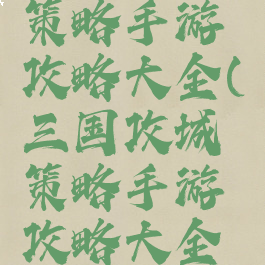 策略手游
攻略大全(
三国攻城
策略手游
攻略大全